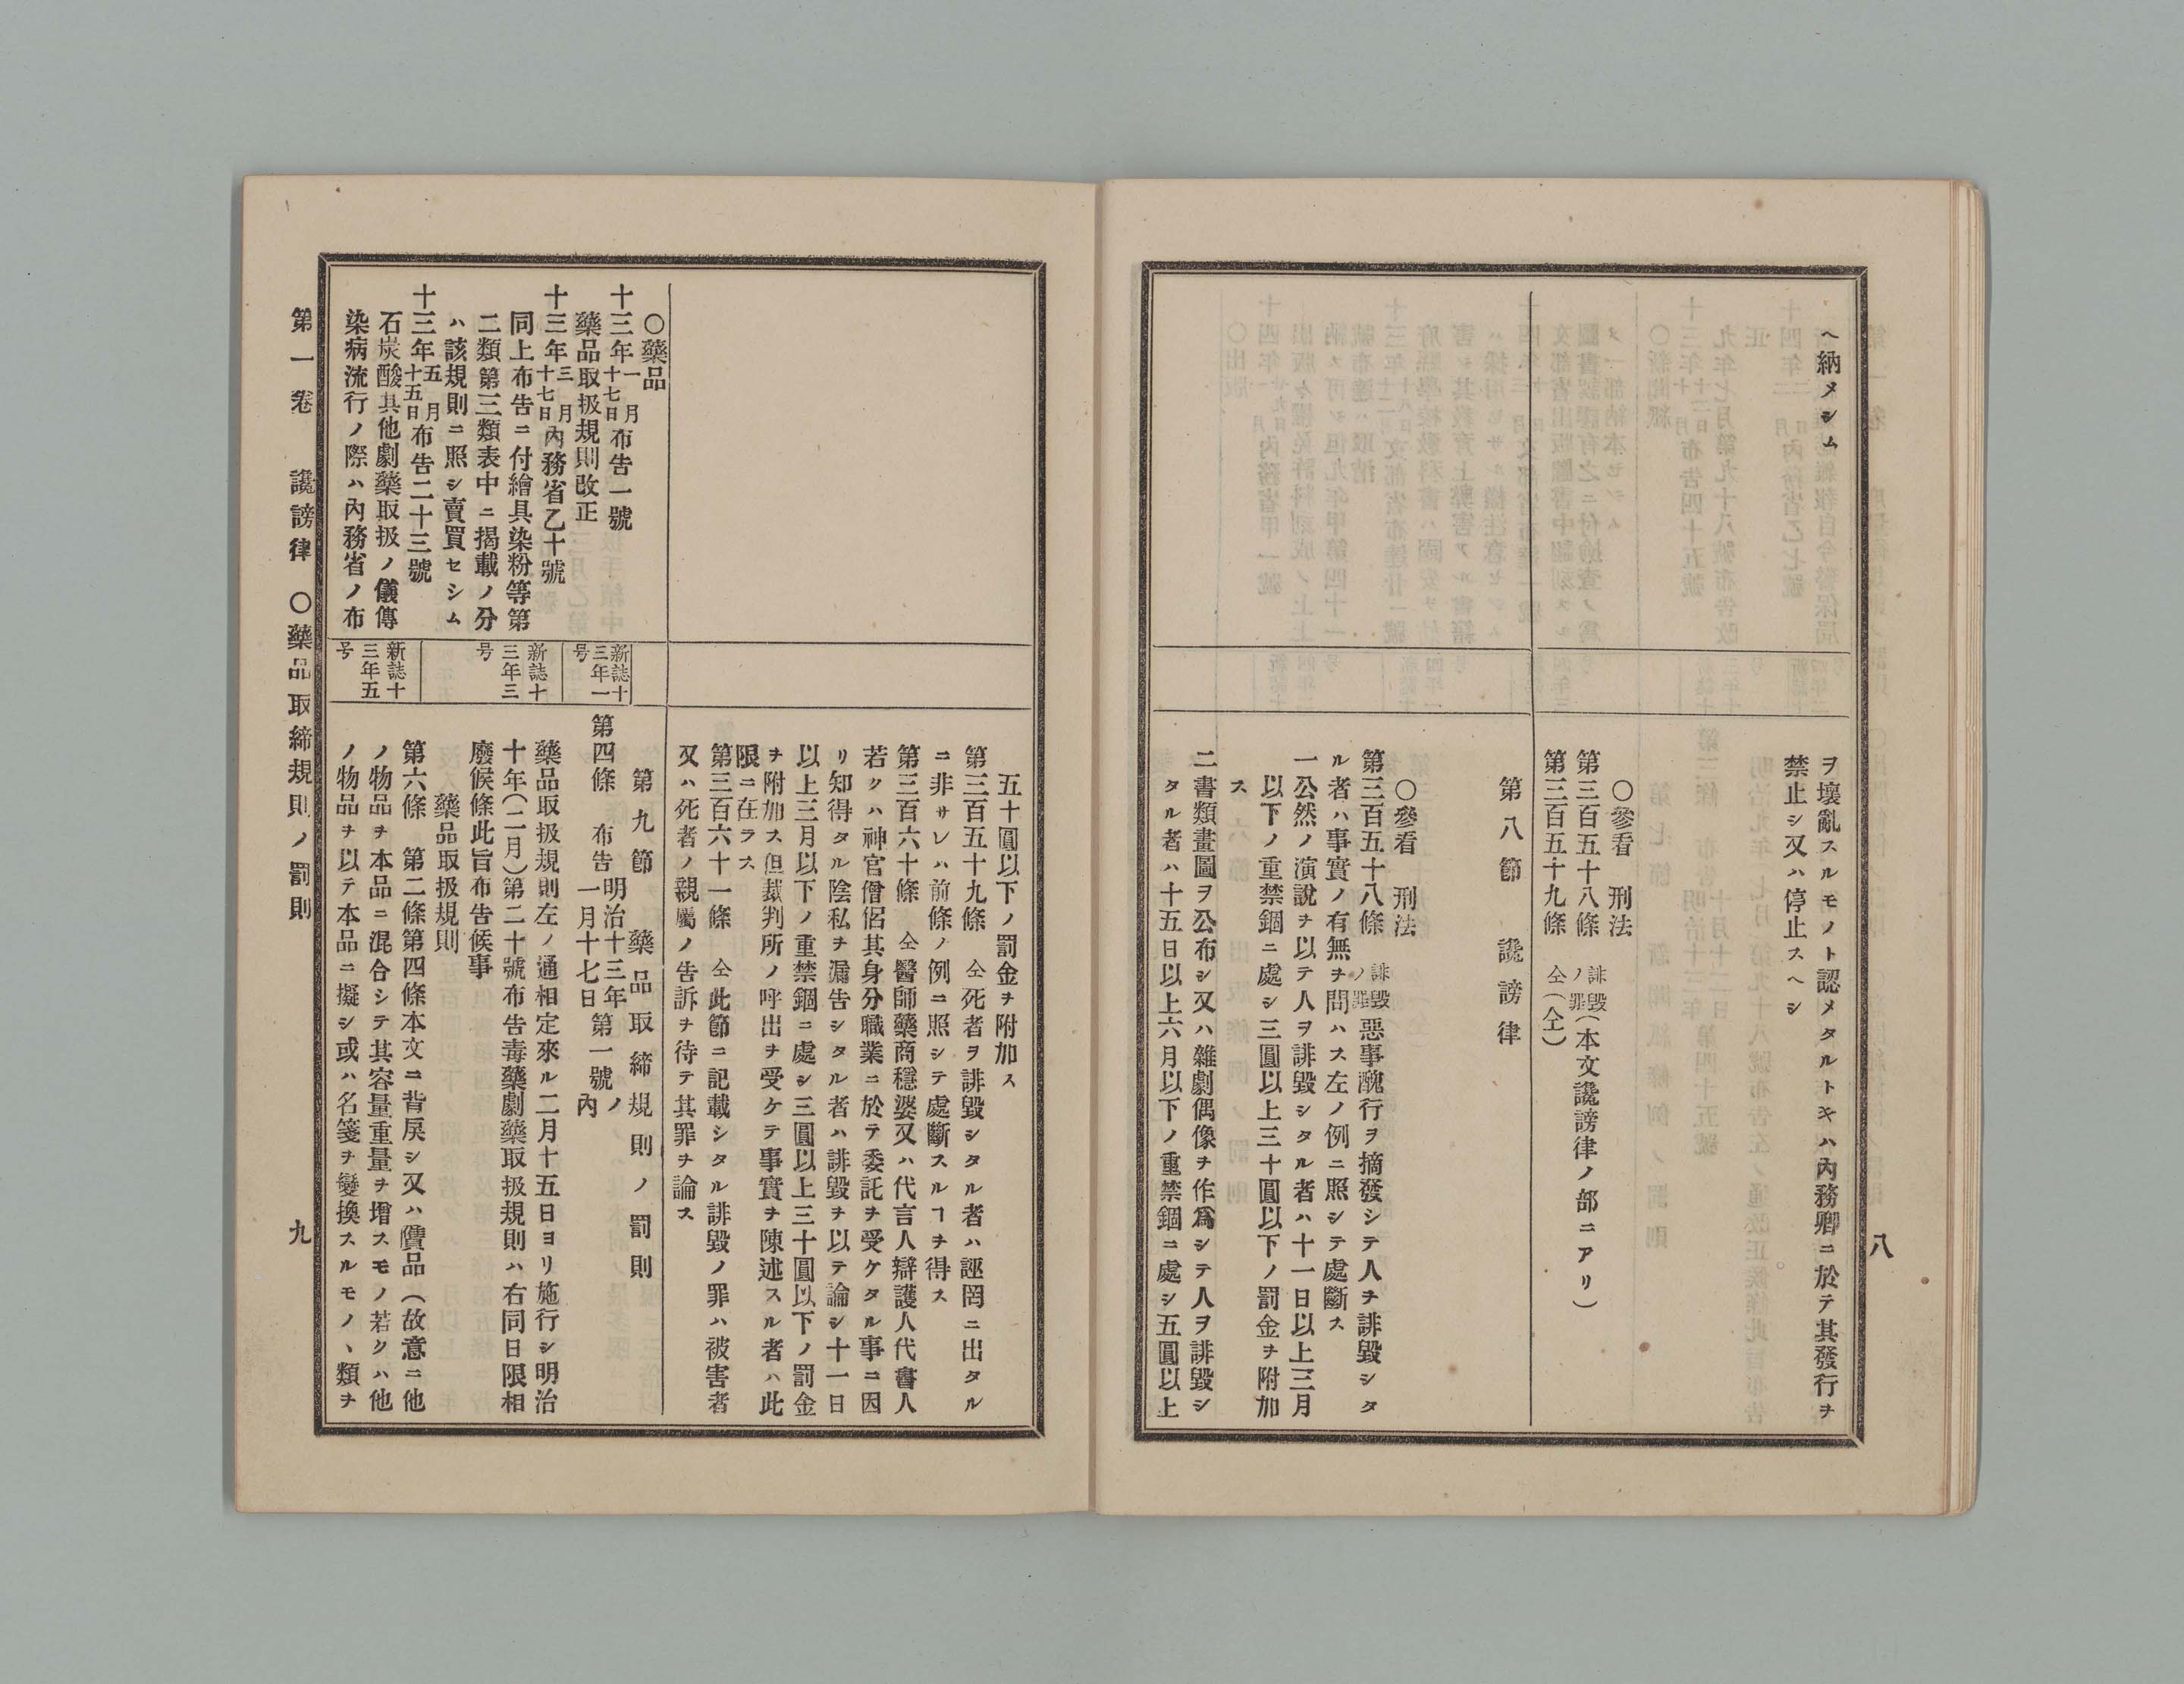 八
ヘ納メシム
ヲ壞亂スルモノト認メタルトキハ內務卿ニ於テ其發行ヲ
禁止シ又ハ停止スヘシ
○參看　刑法
第三百五十八條　誹毀ノ罪(本文讒謗律ノ部ニアリ)
第三百五十九條　仝(仝)
第八節　讒謗律
○參看　刑法
第三百五十八條　誹毀ノ罪惡事醜行ヲ摘發シテ人ヲ誹毀シタ
ル者ハ事實ノ有無ヲ問ハス左ノ例ニ照シテ處斷ス
一公然ノ演說ヲ以テ人ヲ誹毀シタル者ハ十一日以上三月
以下ノ重禁錮ニ處シ三圓以上三十圓以下ノ罰金ヲ附加
ス
二書類畫圖ヲ公布シ又ハ雜劇偶像ヲ作爲シテ人ヲ誹毀シ
タル者ハ十五日以上六月以下ノ重禁錮ニ處シ五圓以上
五十圓以下ノ罰金ヲ附加ス
第三百五十九條　仝死者ヲ誹毀シタル者ハ誣罔ニ出タル
ニ非サレハ前條ノ例ニ照シテ處斷スルヿヲ得ス
第三百六十條　仝醫師藥商穩婆又ハ代言人辯護人代書人
若クハ神官僧侶其身分職業ニ於テ委託ヲ受ケタル事ニ因
リ知得タル陰私ヲ漏告シタル者ハ誹毀ヲ以テ論シ十一日
以上三月以下ノ重禁錮ニ處シ三圓以上三十圓以下ノ罰金
ヲ附加ス但裁判所ノ呼出ヲ受ケテ事實ヲ陳述スル者ハ此
限ニ在ラス
第三百六十一條　仝此節ニ記載シタル誹毀ノ罪ハ被害者
又ハ死者ノ親屬ノ告訴ヲ待テ其罪ヲ論ス
○藥品
十三年一月十七日布告一號
藥品取扱規則改正
十三年三月十七日內務省乙十號
同上布告ニ付繪具染粉等第
二類第三類表中ニ揭載ノ分
ハ該規則ニ照シ賣買セシム
十三年五月十五日布告二十三號
石炭酸其他劇藥取扱ノ儀傳
染病流行ノ際ハ內務省ノ布
新誌十
三年一
号
新誌十
三年三
号
新誌十
三年五
号
第九節　藥品取締規則ノ罰則
第四條　布告明治十三年第一號ノ
一月十七日　內
藥品取扱規則左ノ通相定來ル二月十五日ヨリ施行シ明治
十年(二月)第二十號布告毒藥劇藥取扱規則ハ右同日限相
廢候條此旨布告候事
藥品取扱規則
第六條　第二條第四條本文ニ背戾シ又ハ贋品(故意ニ他
ノ物品ヲ本品ニ混合シテ其容量重量ヲ增スモノ若クハ他
ノ物品ヲ以テ本品ニ擬シ或ハ名箋ヲ變換スルモノヽ類ヲ
第一卷　讒謗律　○藥品取締規則ノ罰則　九